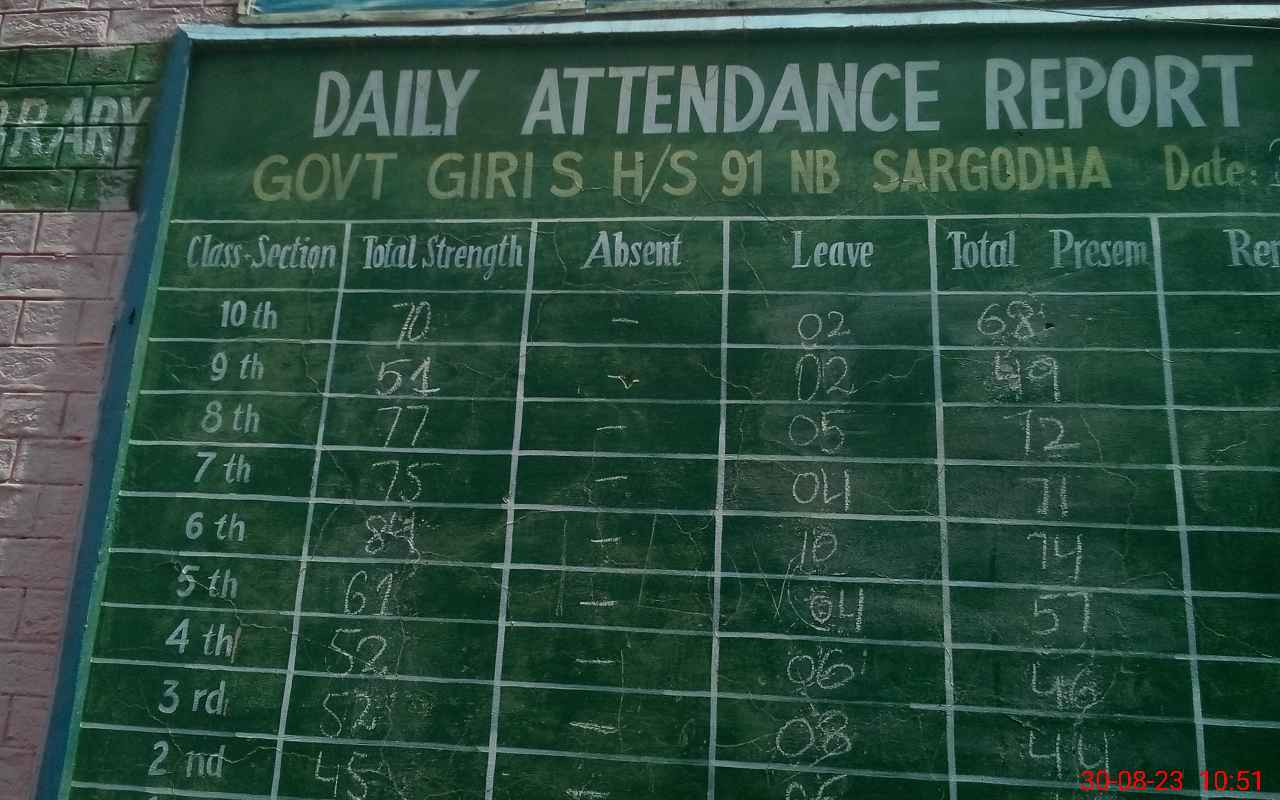 DAILY ATTENDANCE REPORT
GOVT GIRIS H/S 91 NB SARGODHA Date:
BRARY
Class-Section Total Strength Absent Leave Total Presem Rem
10 th 70 – 02 68
9 th 51 – 02 49
8 th 77 – 05 72
7 th 75 – 04 71
6 th 84 – 10 74
5 th 61 – 04 57
4 th 52 – 06 46
3 rd 52 – 08 44
2 nd 45
30-08-23 10:51